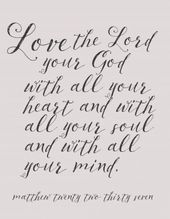 Love the Lord
your God
with all your
heart and with
all your soul
and with all
your mind.
matthew twenty two thirty seven